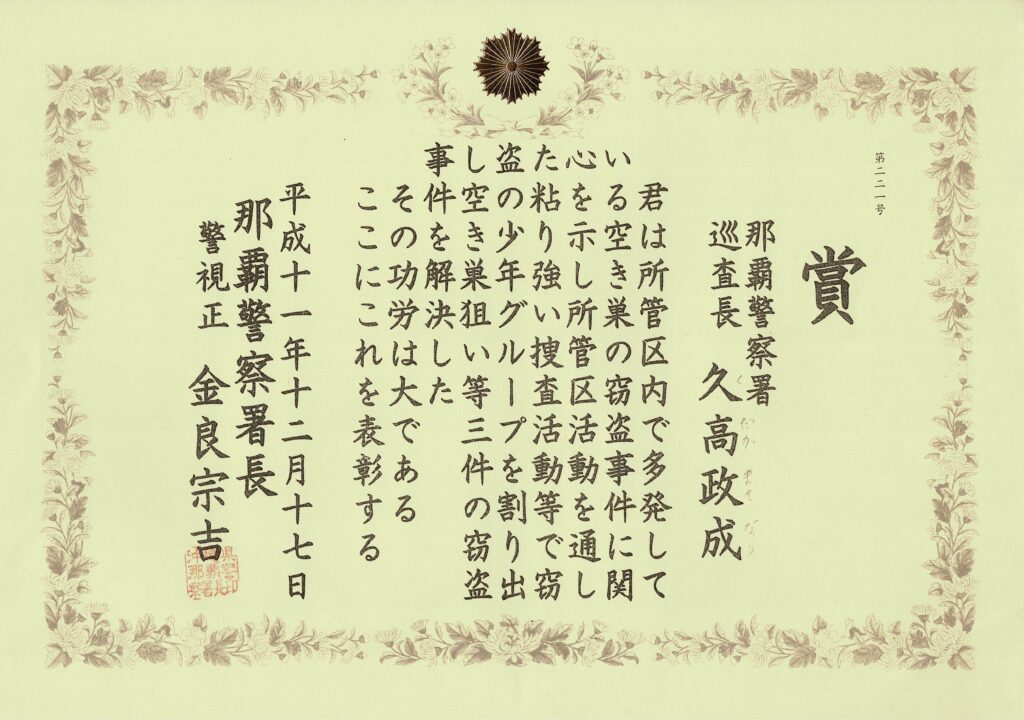 第二二一号
賞
那覇警察署
巡査長 久高政成
く だか まさ なり
君は所管区内で多発して
いる空き巣の窃盗事件に関
心を示し所管区活動を通し
た粘り強い捜査活動等で窃
盗の少年グループを割り出
し空き巣狙い等三件の窃盗
事件を解決した
その功労は大である
ここにこれを表彰する
平成十一年十二月十七日
那覇警察署長
警視正 金良宗吉